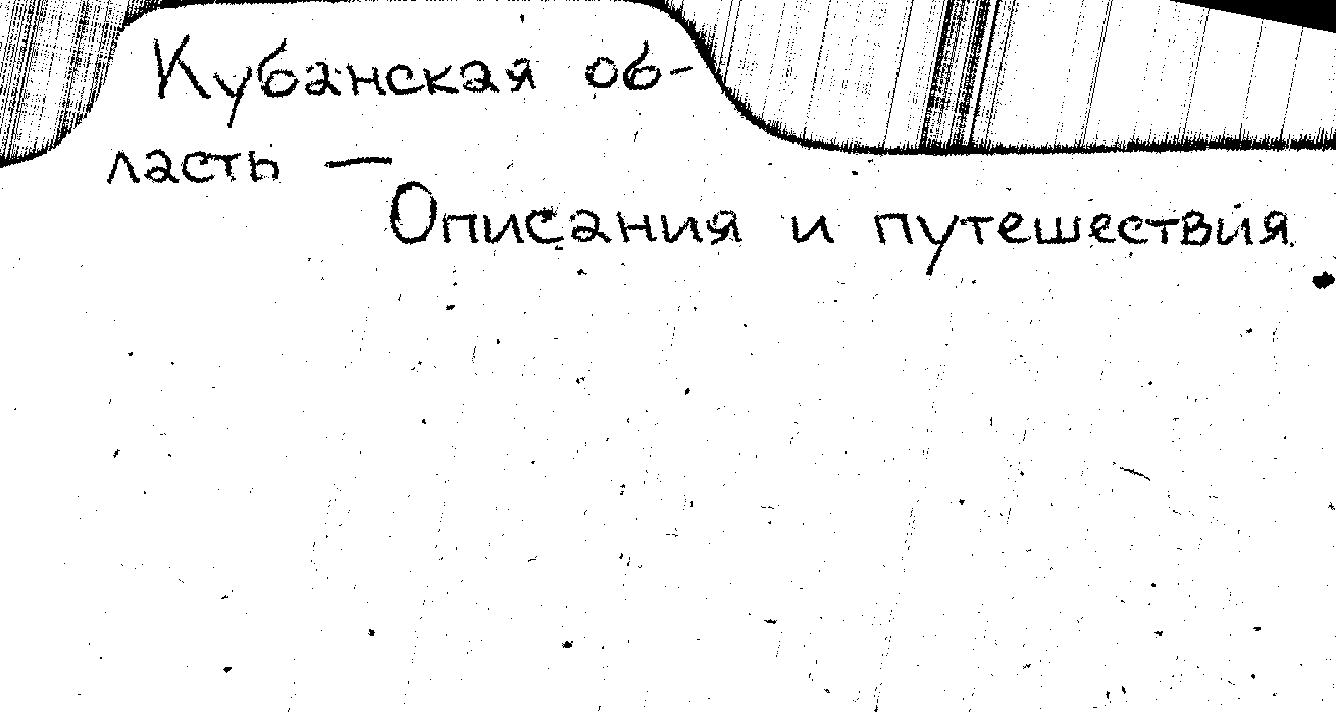 Кубанская об-
ласть —
Описания и путешествия.